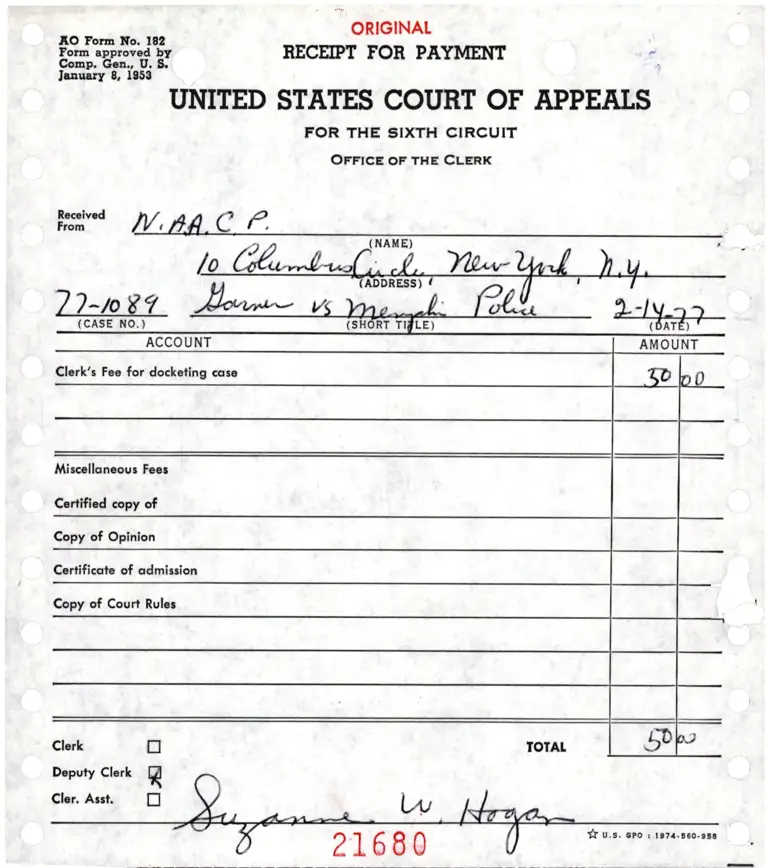 ORIGINAL
AO Form No. 182
Form approved by
Comp. Gen., U. S.
January 8, 1953
RECEIPT FOR PAYMENT
UNITED STATES COURT OF APPEALS
FOR THE SIXTH CIRCUIT
OFFICE OF THE CLERK
Received From N.A.A.C.P.
(NAME)
10 Columbus Circle, New York, N.Y.
(ADDRESS)
77-1089 Garner vs Memphis Police 2-14-77
(CASE NO.) (SHORT TITLE) (DATE)
ACCOUNT AMOUNT
Clerk's Fee for docketing case 50 00
Miscellaneous Fees
Certified copy of
Copy of Opinion
Certificate of admission
Copy of Court Rules
Clerk TOTAL 50 00
Deputy Clerk
Cler. Asst.
Suzanne W. Hogan
21680
☆ U.S. GPO : 1974-560-958